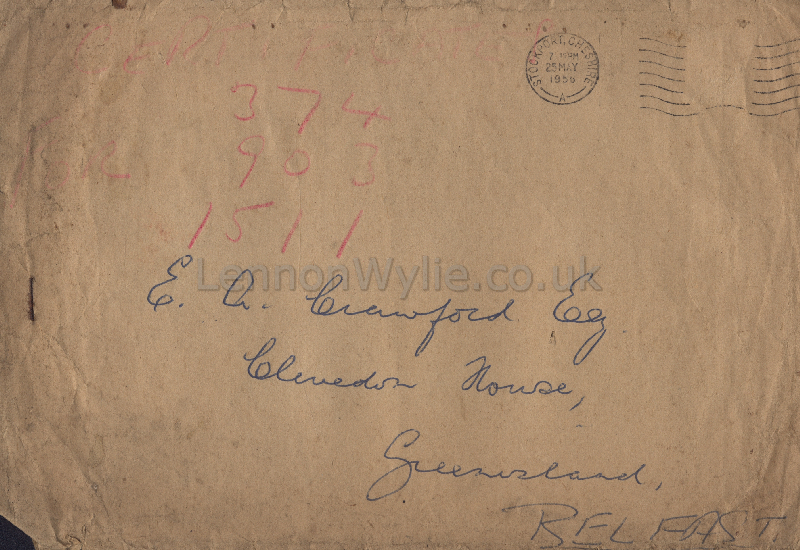 STOCKPORT, CHESHIRE
25 MAY
1956
A
374
903
1511
LennonWylie.co.uk
E. A. Crawford Esq
Clevedon House,
Greenisland,
BELFAST.